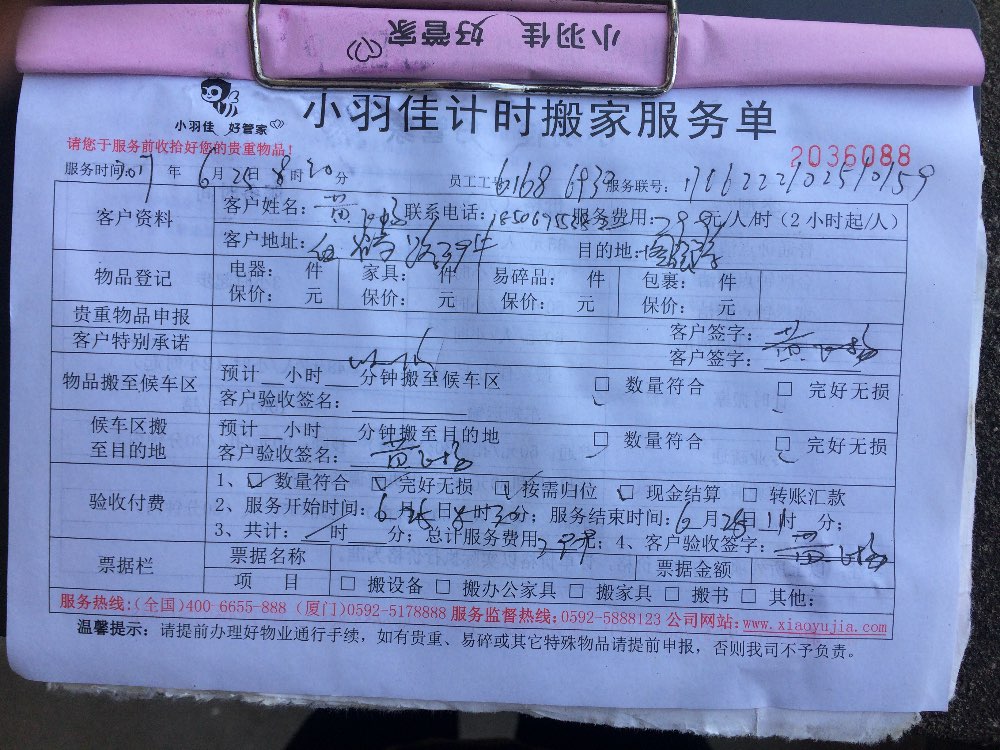 小羽佳 好管家
小羽佳 好管家
小羽佳计时搬家服务单
请您于服务前收拾好您的贵重物品!
2036088
服务时间:2017年6月25日8时30分 员工工号: 服务联号:
客户资料 客户姓名:黄 联系电话: 服务费用: 元/人/时(2小时起/人)
客户地址: 目的地:
物品登记 电器: 件 家具: 件 易碎品: 件 包裹: 件
保价: 元 保价: 元 保价: 元 保价: 元
贵重物品申报 客户签字:黄
客户特别承诺 客户签字:
物品搬至候车区 预计__小时___分钟搬至候车区 □ 数量符合 □ 完好无损
客户验收签名:
候车区搬至目的地 预计__小时___分钟搬至目的地 □ 数量符合 □ 完好无损
客户验收签名:黄
验收付费 1、□ 数量符合 □ 完好无损 □ 按需归位 □ 现金结算 □ 转账汇款
2、服务开始时间:6月25日8时30分;服务结束时间:6月25日11时 分;
3、共计: 时 分;总计服务费用 元;4、客户验收签字:黄
票据栏 票据名称 票据金额
项 目 □ 搬设备 □ 搬办公家具 □ 搬家具 □ 搬书 □ 其他:
服务热线:(全国)400-6655-888 (厦门)0592-5178888 服务监督热线:0592-5888123 公司网站:www.xiaoyujia.com
温馨提示:请提前办理好物业通行手续,如有贵重、易碎或其它特殊物品请提前申报,否则我司不予负责。